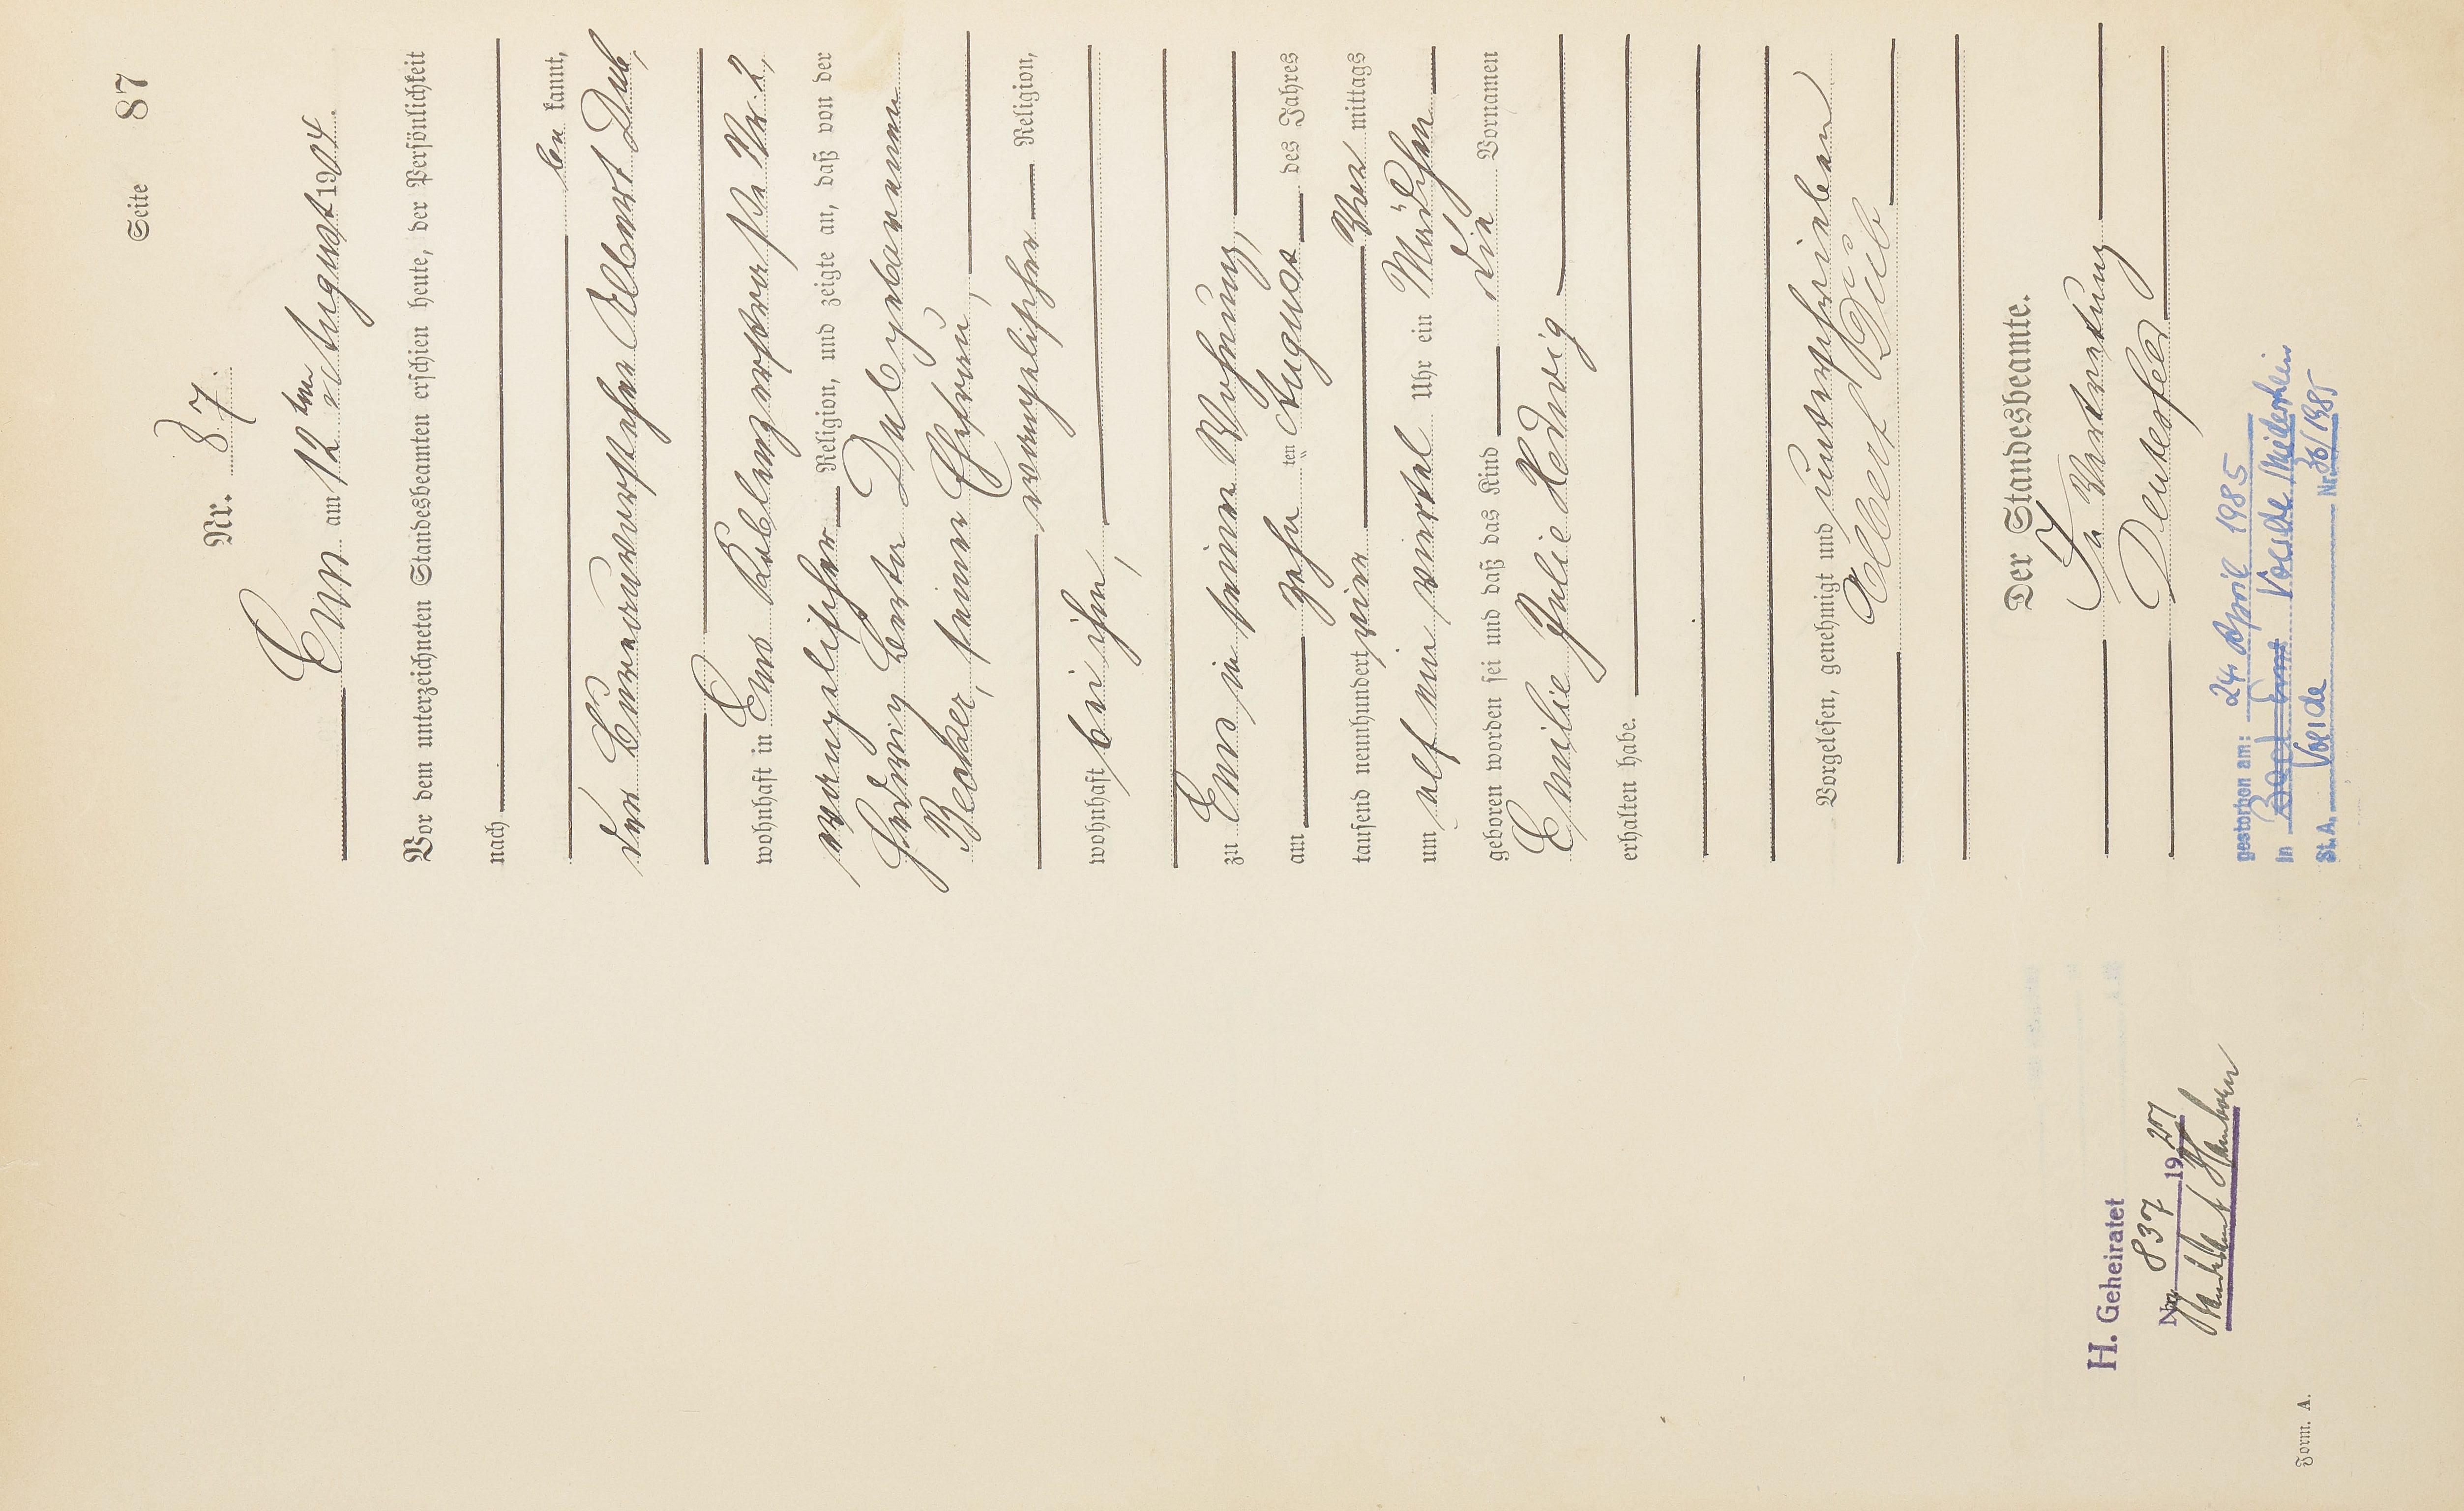 Seite 87
Nr. 87.
Ems am 12ten August 1904.
Vor dem unterzeichneten Standesbeamten erschien heute, der Persönlichkeit
nach
be kannt,
der Bureauvorsteher Albert Dub,
wohnhaft in Ems Koblenzerstrasse Nr. 2,
evangelischer Religion, und zeigte an, daß von der
Hedwig Berta Dub geborenen
Becker, seiner Ehefrau,
evangelischer Religion,
wohnhaft bei ihm,
zu Ems in seiner Wohnung,
am zehn ten August des Jahres
tausend neunhundert vier Vor mittags
um elf ein viertel Uhr ein Mädchen
geboren worden sei und daß das Kind die Vornamen
Emilie Julie Hedwig
erhalten habe.
Vorgelesen, genehmigt und unterschrieben
Albert Dub
Der Standesbeamte.
In Vertretung
gestorben am: 24. April 1985
in Bad Ems Voerde/Niederrhein
St. A. Voerde Nr. 36/1985
H. Geheiratet
Nr. 837 1927
Standesamt Hamborn
Form. A.